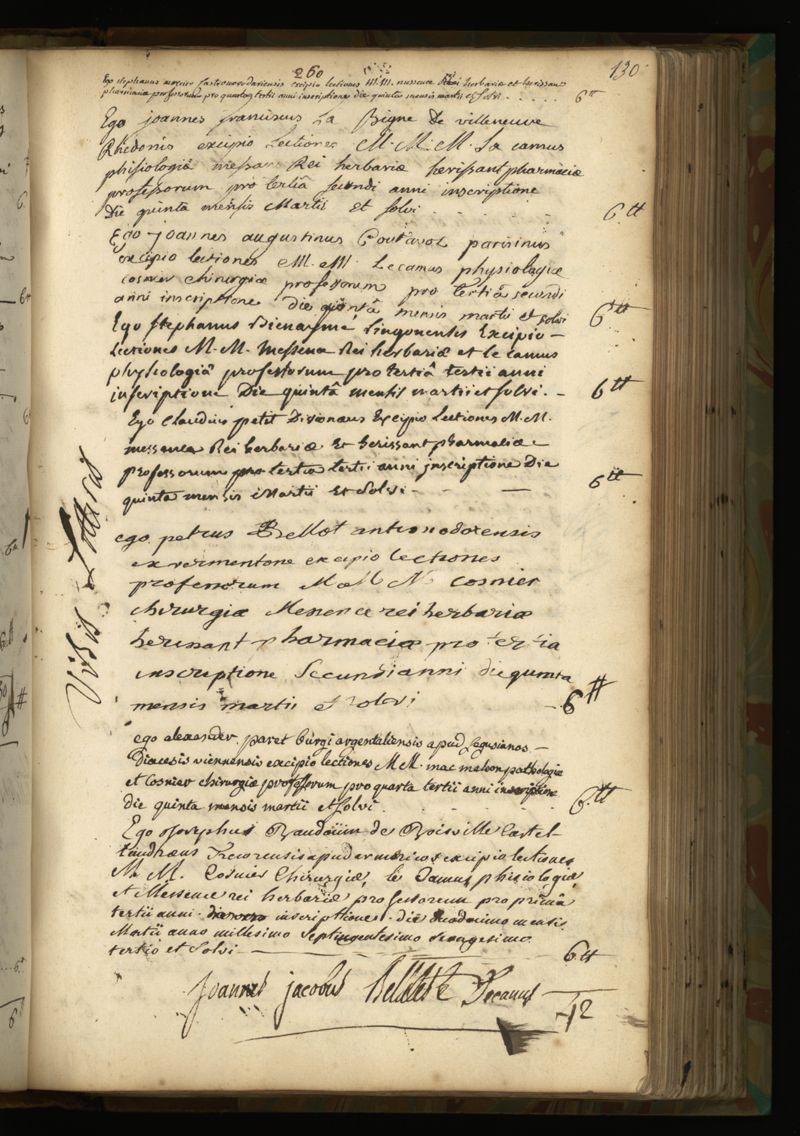 260
130
Ego stephanus mercier castronovodariensis excipio lectiones M.M. messence Rei herbariæ et herissant
pharmaciæ professorum pro quarta tertii anni inscriptione die quinta mensis martii et solvi 6 tt
Ego joannes franciscus La Bigne de villeneuve
Rhedonis excipio Lectiones M. M. M. La camus
phisiologiæ messance Rei herbariæ herissant pharmaciæ
professorum pro tertiâ secundi anni inscriptione
Die quinta mensis Martii Et solvi 6 tt
Ego Joannes augustinus Coutavoz parisinus
excipio lectiones M. M. Lecamus physiologiæ
cosnier chirurgiæ professorum pro tertiâ secundi
anni inscriptione die quintâ mensis martii et solvi 6 tt
Ego stephanus Dienaymé Lingonensis Excipio
Lectiones M. M. Messena Rei herbariæ et le camus
physiologiâ professorum pro tertiâ tertii anni
inscriptione Die quintâ mensis martii et solvi. 6 tt
Ego Claudius petit Divionaus Excipio Lectiones M. M.
messence Rei herbariæ Et herissant pharmaciæ
professorum pro tertia tertii anni inscriptione Die
quinta mensis Martii Et Solvi 6 tt
ego petrus Bellot antissiodorensis
ex vermentone excipio lectiones
professorum M M M cosnier
chirurgiæ Messence rei herbariæ
herissant pharmaciæ pro tertia
inscriptione Secundi anni die quinta
mensis martii et solvi 6 tt
ego alexander paret burgi argentaliensis apud segusianos
Diæcesis viennensis excipio lectiones M M. mac maheon pathologiæ
et Cosnier chirurgiæ professorum pro quarta tertii anni inscriptione
die quinta mensis martii et solvi 6 tt
Ego Josephus Baudoüin de Boisville Castel
laudræus Trecorensis apud armoricos excipio lectiones
M. M. Cosnier Chirurgiæ, le Camus phisiologiæ
et Messence rei herbariæ professorum pro primâ
tertii anni inscriptione. die duodecimo mensis
Martii anno millesimo Septingentesimo sexagesimo
tertio et Solvi 6 tt
Joannes jacobus Belleteste Decanus